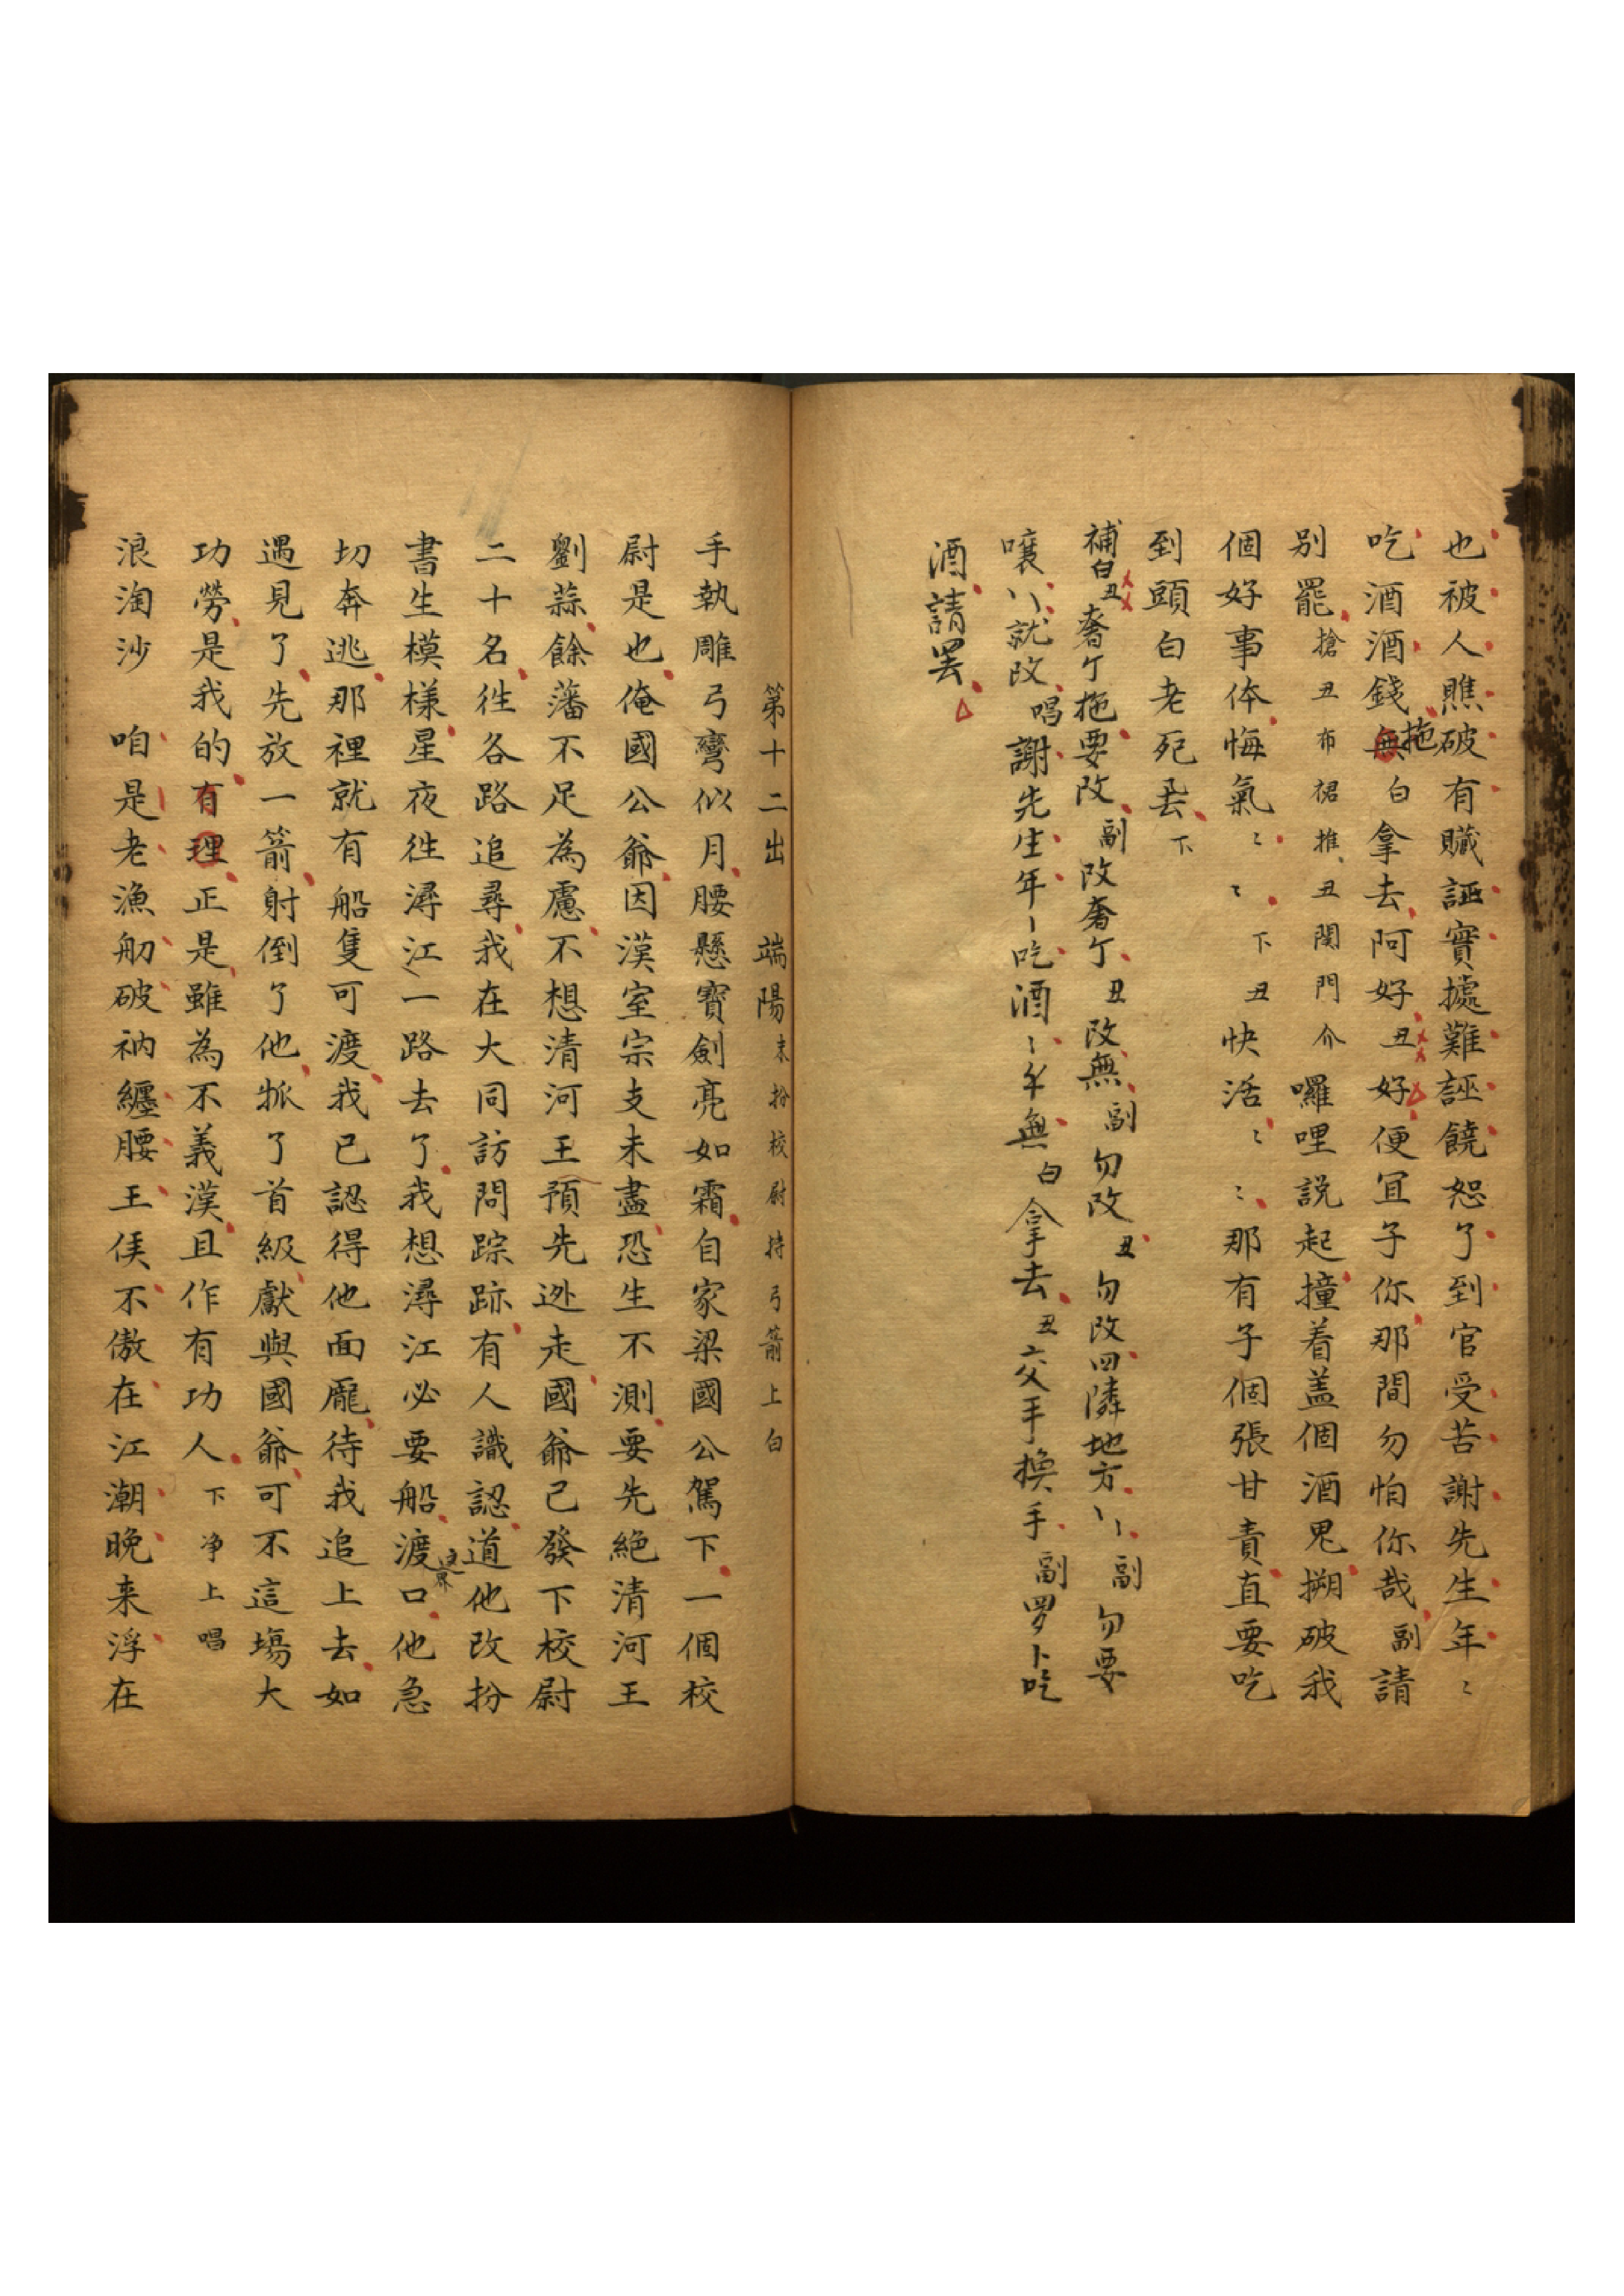 也被人瞧破有贓誣實據難誣饒恕了到官受苦謝先生年〻
吃酒酒錢無拖白拿去阿好丑好便宜子你那間勿怕你哉副請
別罷搶丑布裙推丑関門介囉哩説起撞着盖個酒鬼搠破我
個好事体悔氣〻〻下丑快活〻〻那有子個張甘責直要吃
到頭白老死丟下
補白丑奢個拖要改副改奢個丑改無副勿改丑勿改四隣地方〻〻副勿要
嚷〻〻就改唱謝先生年〻吃酒〻年無白拿去丑交手換手副罗卜吃
酒請罢
第十二出 端陽末扮校尉持弓箭上白
手執雕弓彎似月腰懸寶劍亮如霜自家梁國公駕下一個校
尉是也俺國公爺因漢室宗支未盡恐生不測要先絶清河王
劉蒜餘藩不足為慮不想清河王預先迯走國爺已發下校尉
二十名徃各路追尋我在大同訪問踪跡有人識認道他改扮
書生模樣星夜徃潯江一路去了我想潯江必要船渡口他急
切奔逃那裡就有船隻可渡我已認得他面龐待我追上去如
遇見了先放一箭射倒了他抓了首級獻與國爺可不這塲大
功勞是我的有理正是雖為不義漢且作有功人下净上唱
浪淘沙 咱是老漁舠破衲纏腰王侯不傲在江潮晚来浮在